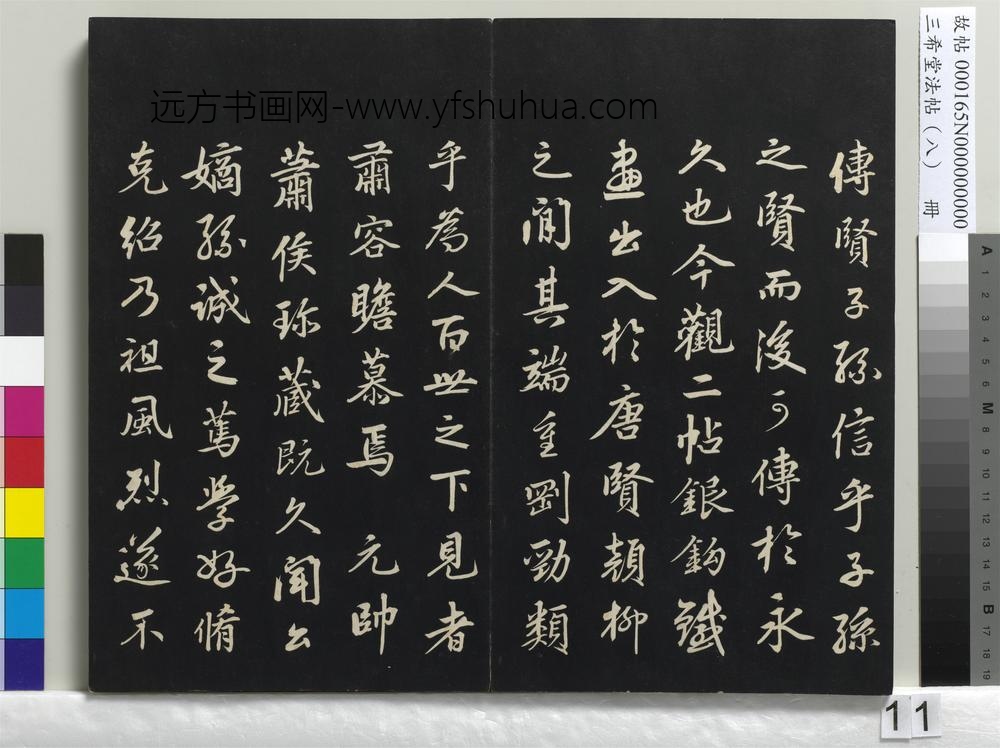 傳賢子孫信乎子孫
之賢而後可傳於永
久也今觀二帖銀鈎鐵
畫出入於唐賢顔柳
之間其端重剛勁類
乎為人百世之下見者
肅容瞻慕焉 元帥
蕭侯珎藏既久聞公
嫡孫誠之篤学好脩
克紹乃祖風烈遂不
远方书画网-www.yfshuhua.com
故帖 000165N000000000
三希堂法帖(八) 冊
A 1 2 3 4 5 6 M 8 9 10 11 12 13 14 15 B 17 18 19
11